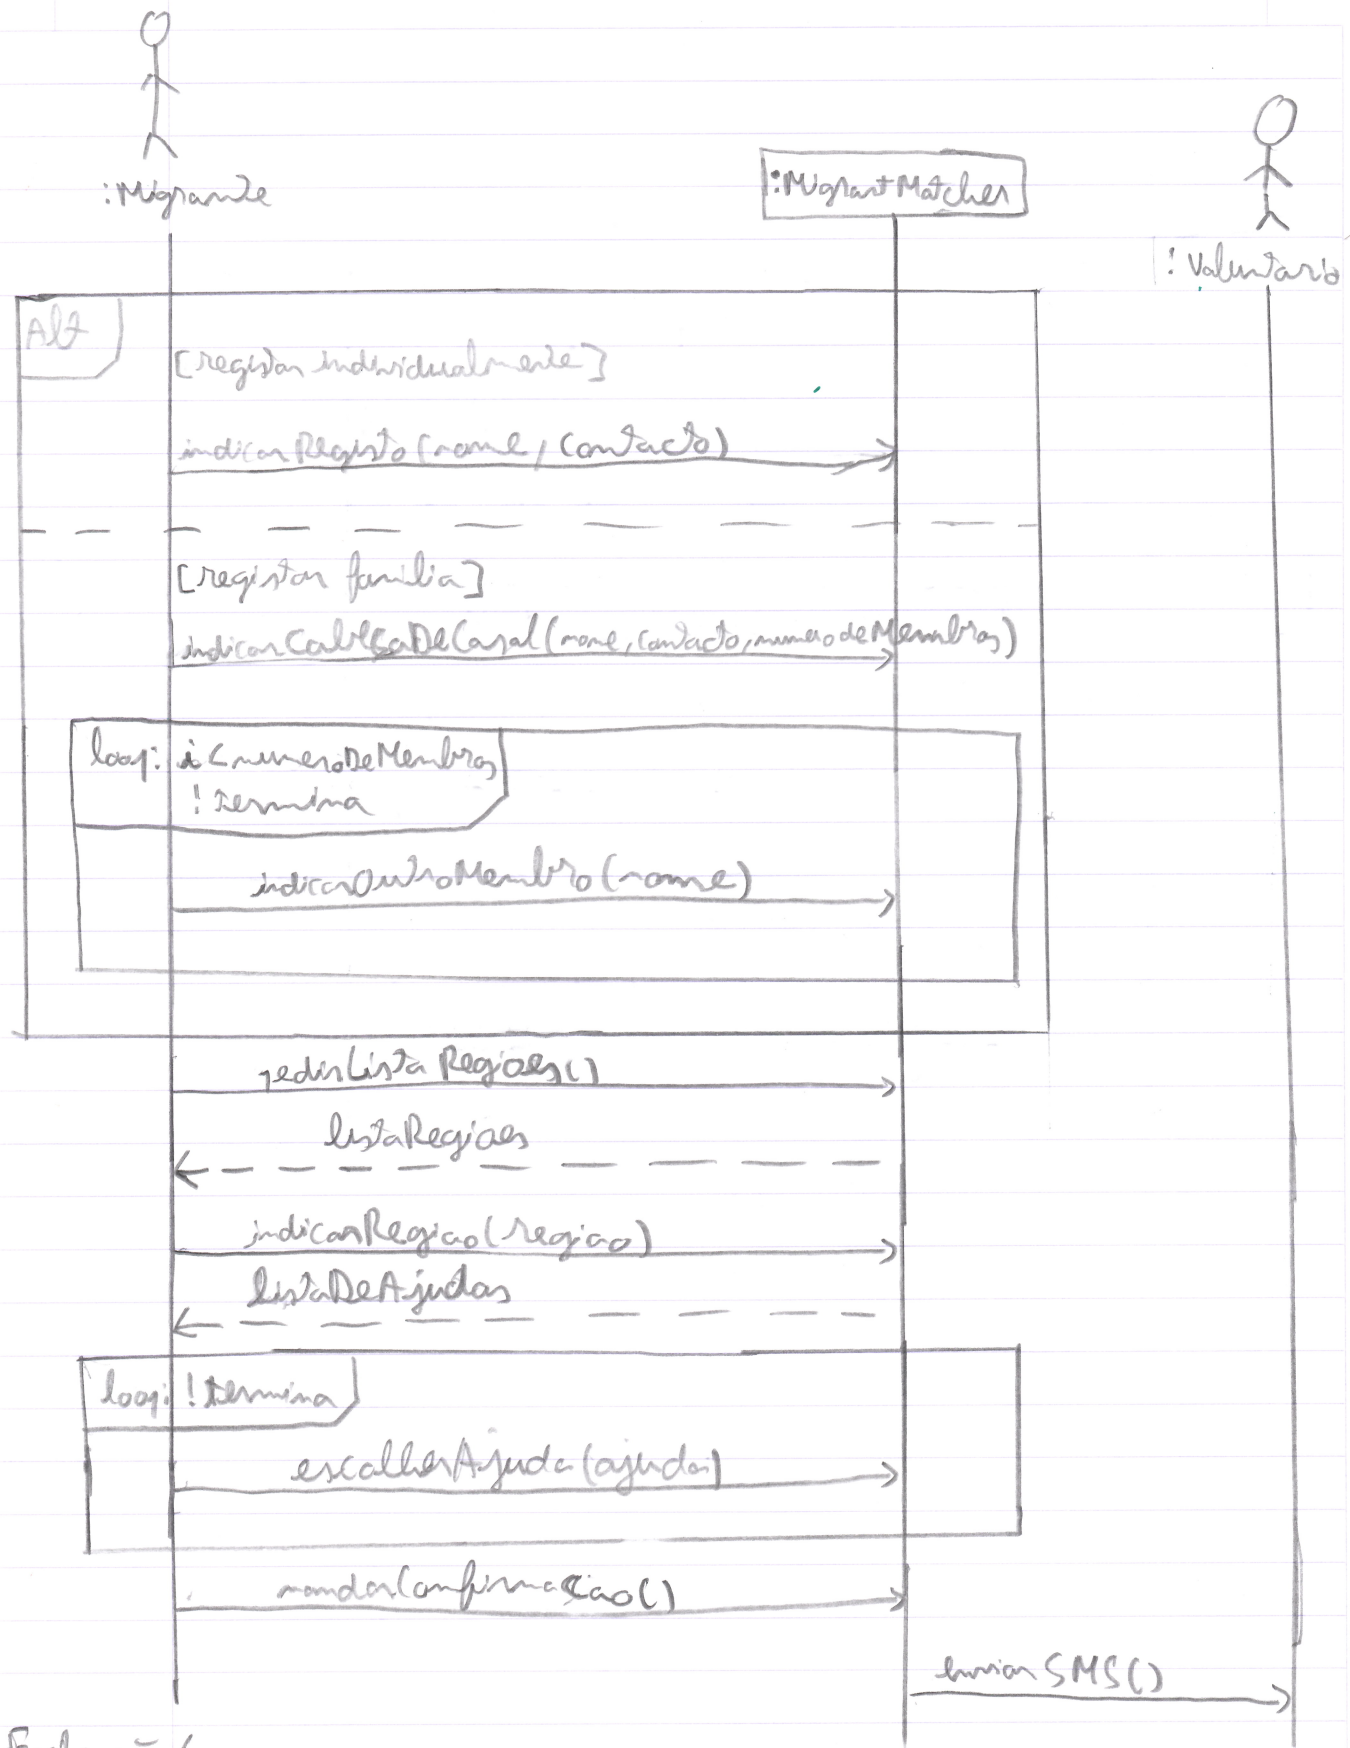 :Migrante
:MigrantMatcher
:Voluntario
Alt
[registar individualmente]
indicarRegisto(nome, contacto)
[registar familia]
indicarCabeçaDeCasal(nome, contacto, numerodeMembros)
loop: i<numeroDeMembros
!termina
indicarOutroMembro(nome)
pedirListaRegioes()
listaRegioes
indicarRegiao(regiao)
listaDeAjudas
loop: !termina
escolherAjuda(ajuda)
mandarConfirmaçao()
enviarSMS()